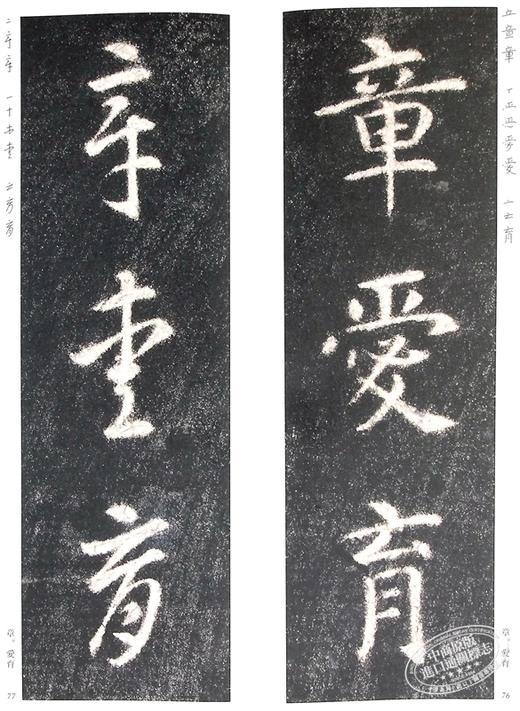 章愛育
章。愛育
76
章愛育
章。愛育
77